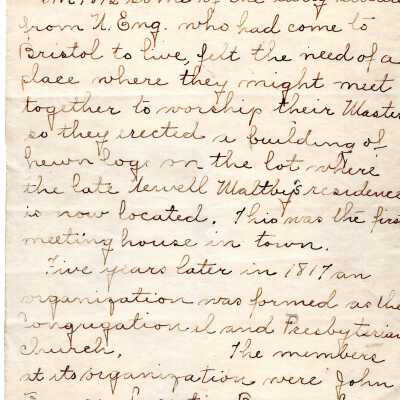 from N. Eng. who had come to
Bristol to live, felt the need of a
place where they might meet
together to worship their Master
so they erected a building of
hewn logs on the lot where
the late Newell Maltby's residence
is now located. This was the first
meeting house in town.
Five years later in 1817 an
organization was formed as the
Congregational and Presbyterian
Church. The members
at its organization were John